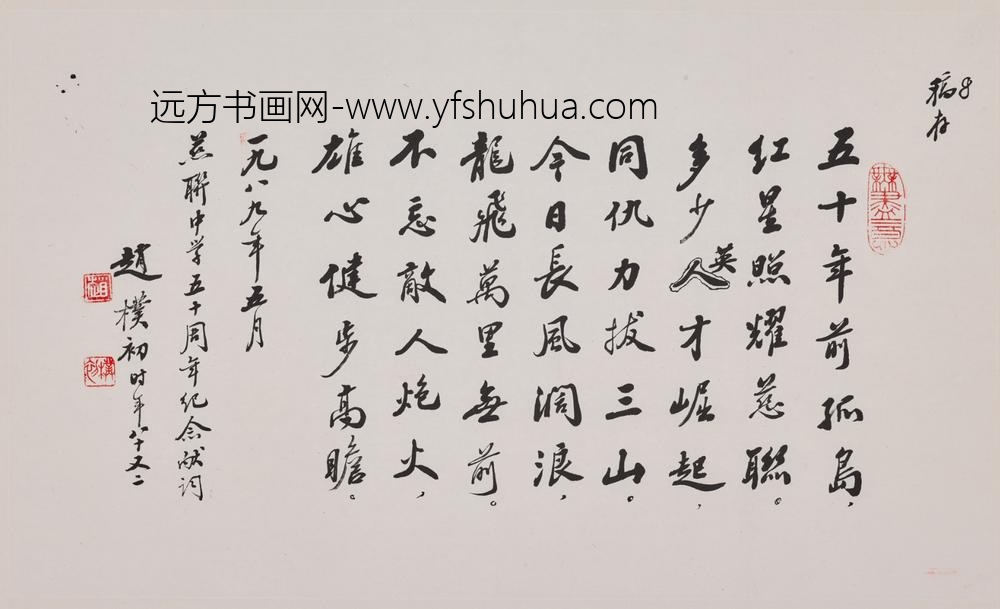 远方书画网-www.yfshuhua.com
稿存
五十年前孤島，
红星照耀慈聯。
多少人英才崛起，
同仇力拔三山。
今日長風濶浪，
龍飛萬里無前。
不忘敵人炮火，
雄心健步高瞻。
一九八九年五月
慈聯中学五十周年纪念献词
趙樸初时年八十又二